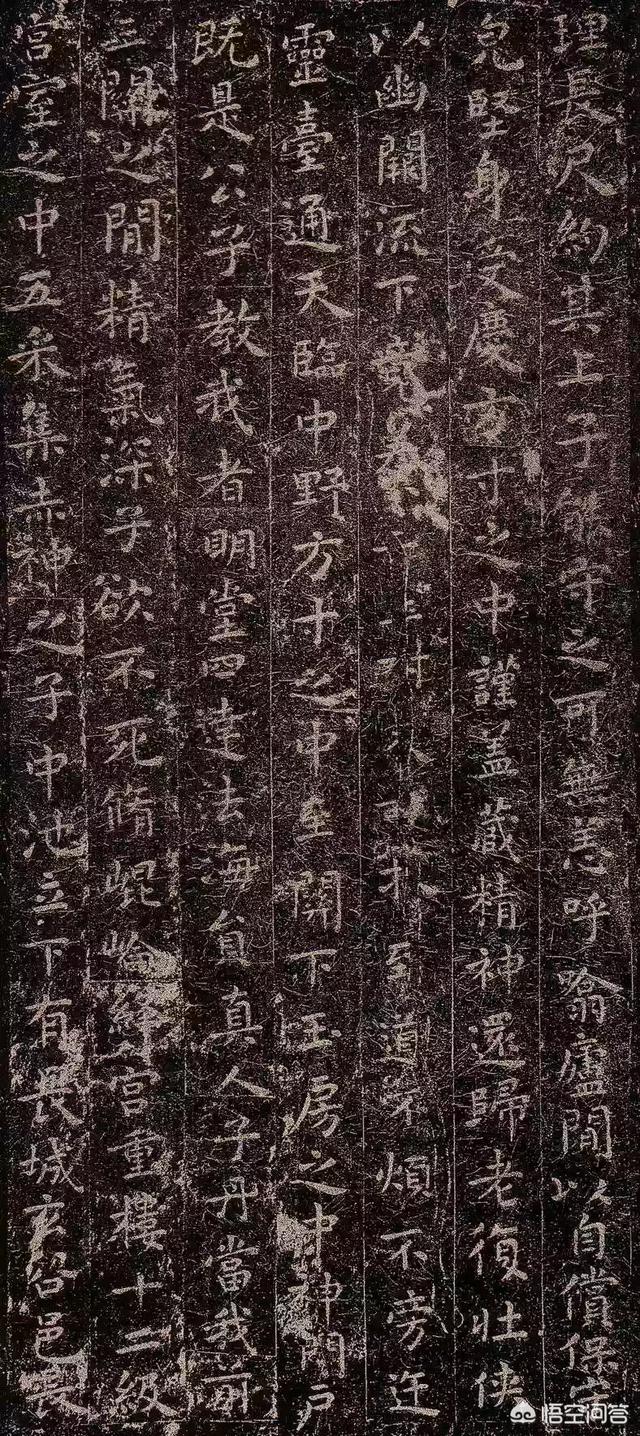 理長尺約其上子能守之可無恙呼噏廬間以自償保守
皃堅身受慶方寸之中謹盖藏精神還歸老復壯俠
以幽闕流下至道不煩不旁迕
靈臺通天臨中野方寸之中至關下玉房之中神門户
既是公子教我者明堂四達法海員真人子丹當我前
三關之間精氣深子欲不死脩崐崘絳宮重樓十二級
宮室之中五采集赤神之子中池立下有長城玄谷邑長
悟空问答